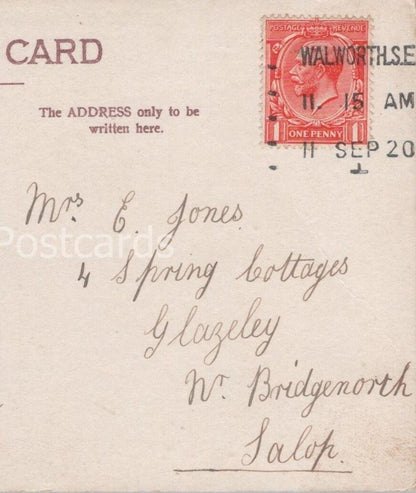 CARD
POSTAGE REVENUE
ONE PENNY
WALWORTH.S.E
11. 15 AM
11 SEP 20
The ADDRESS only to be
written here.
Mrs E. Jones.
Postcards
4 Spring Cottages
Glazeley
Nr. Bridgenorth
Salop.